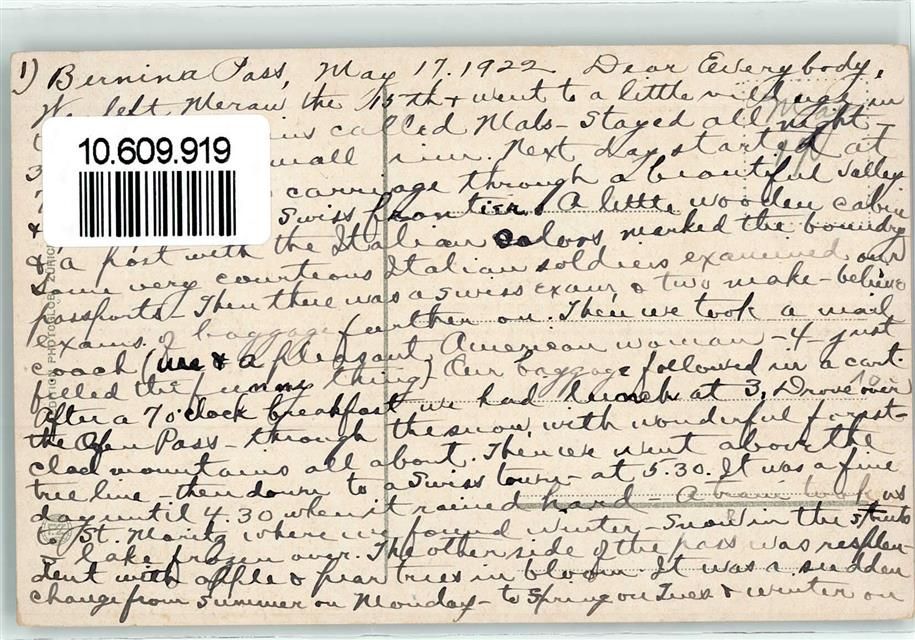 1) Bernina Pass, May 17. 1922 Dear Everybody,
We left Meran the 15th & went to a little village in
called Mals - Stayed all night -
small inn. Next day started at
carriage through a beautiful valley
Swiss frontier. A little wooden cabin
& a post with the Italian colors marked the boundry
Some very courtious Italian soldiers examined our
passports. Then there was a swiss exam, & two make-believe
exams. of baggage further on. Then we took a mail
coach (we & a pleasant American woman - 4 - just
filled the funny thing) Our baggage followed in a cart.
After a 7 o'clock breakfast we had lunch at 3, Drove over
the Ofen Pass - through the snow, with wonderful forest-
clad mountains all about. Then we went above the
tree line - then down to a Swiss town - at 5.30. It was a fine
day until 4.30 when it rained hard - A train took us
to St. Moritz where we found winter - Snow in the streets
& lake frozen over. The other side of the pass was resplen-
dent with apple & pear trees in bloom. It was a sudden
change from Summer on Monday - to Spring on Tues & winter on
10.609.919
PHOTOGLOB ZÜRICH